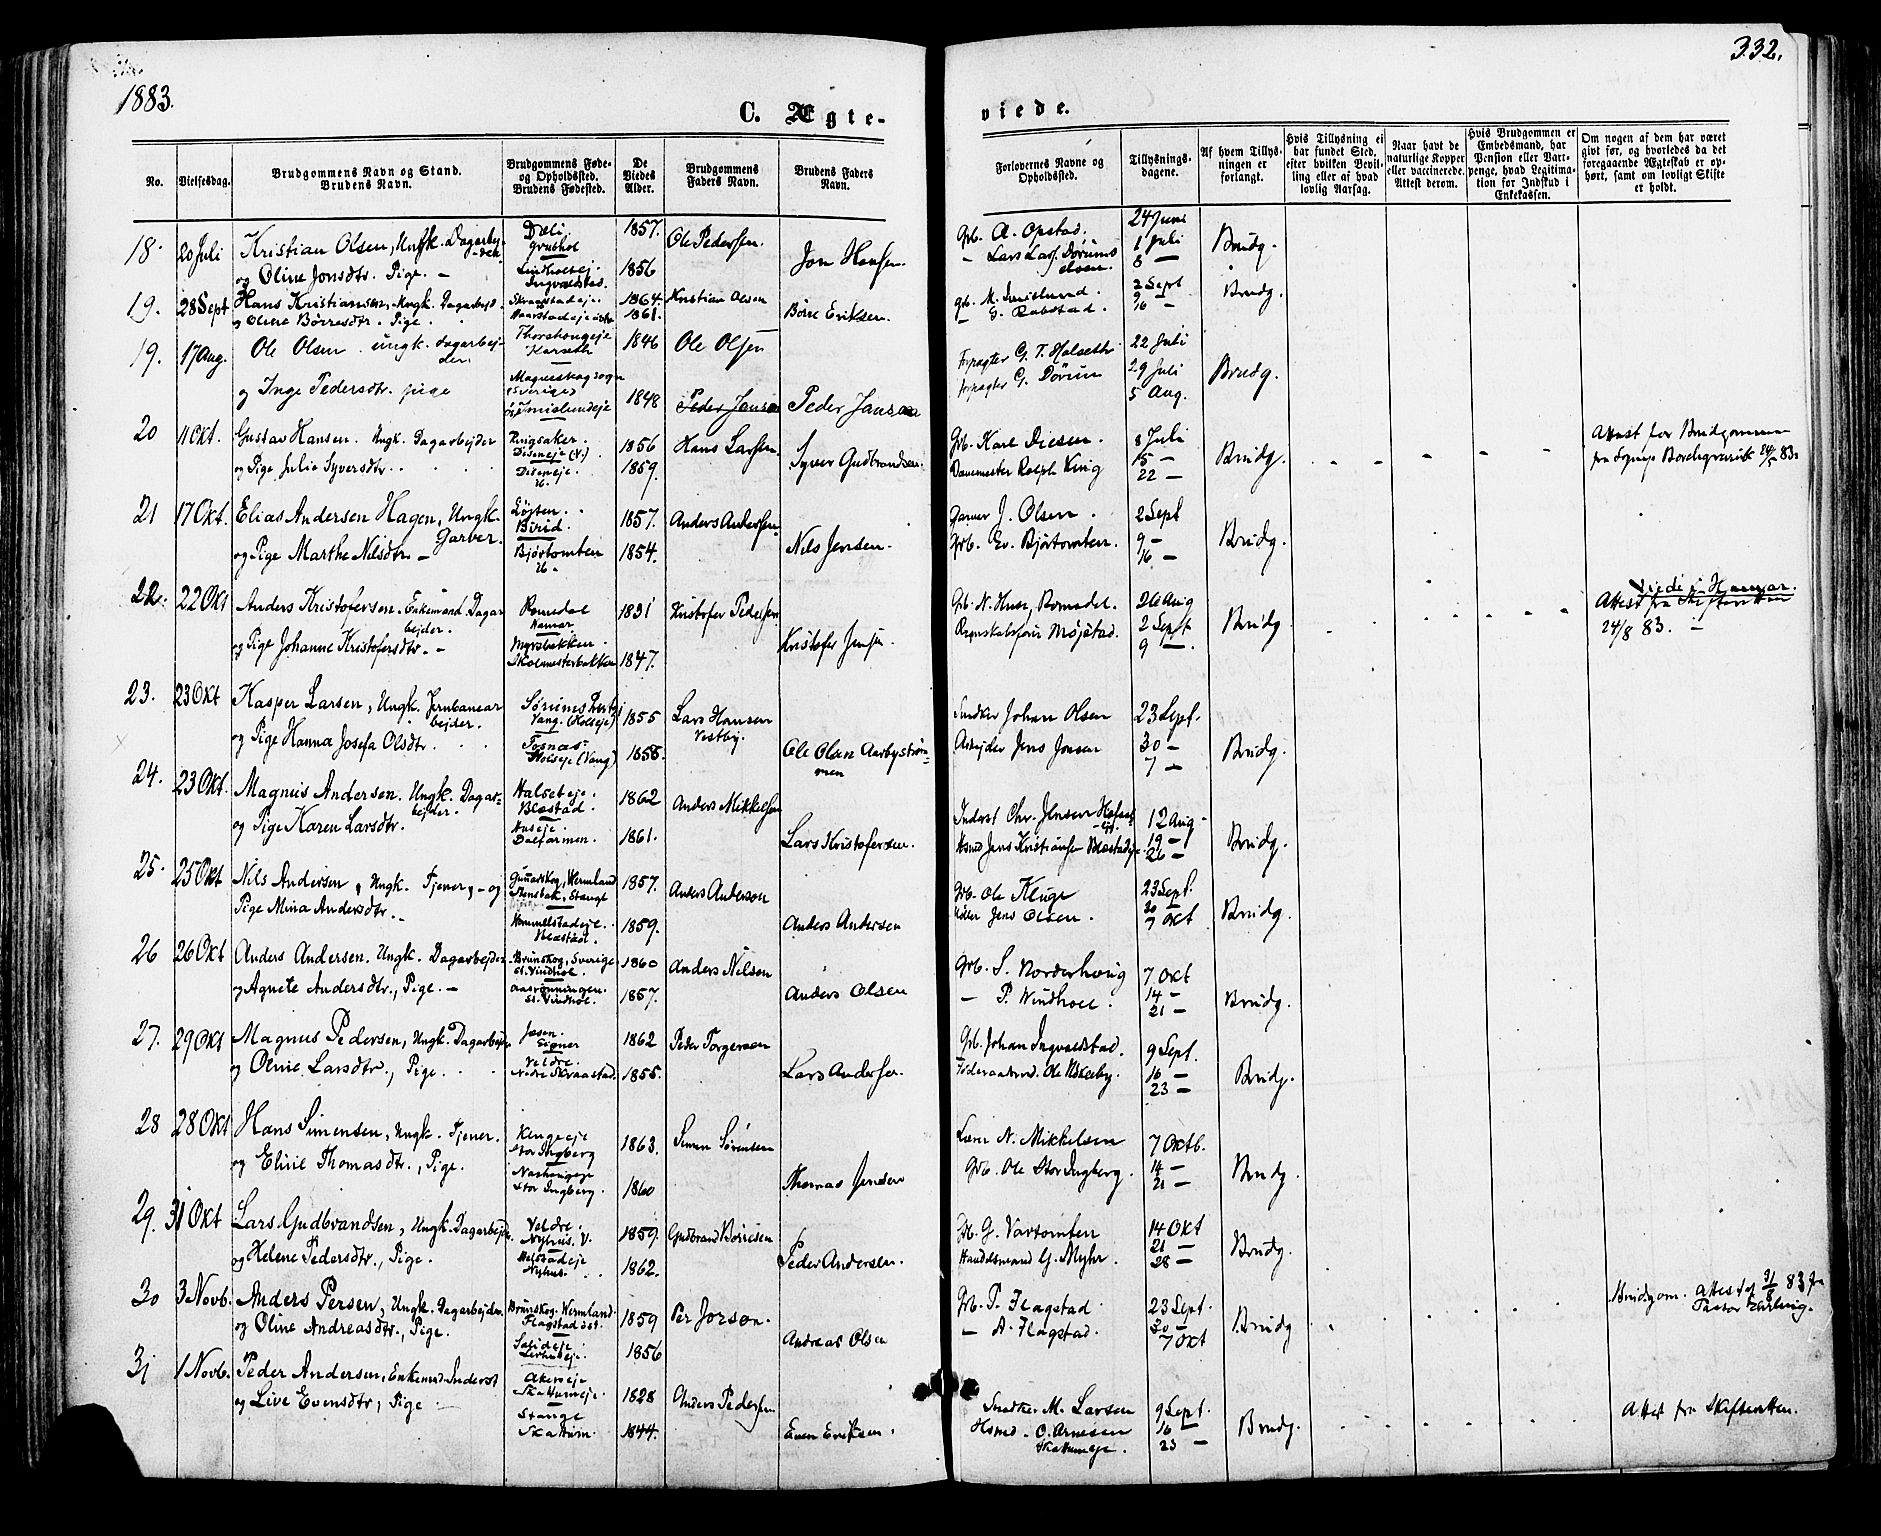 1883.
332.
C. Ægte-
viede.
No.
Vielsesdag.
Brudgommens Navn og Stand.
Brudens Navn.
Brudgommens Føde-
og Opholdssted.
Brudens Fødested.
De
Viedes
Alder.
Brudgommens
Faders Navn.
Brudens Faders
Navn.
Forlovernes Navne og
Opholdssted.
Tillysnings-
dagene.
Af hvem Tillys-
ningen er
forlangt.
Hvis Tillysning ei
har fundet Sted,
efter hvilken Bevil-
ling eller af hvad
lovlig Aarsag.
Naar havt de
naturlige Kopper
eller vaccinerede.
Attest derom.
Hvis Brudgommen er
Embedsmand, har
Pension eller Vart-
penge, hvad Legitima-
tion for Indskud i
Enkekassen.
Om nogen af dem har været
givt før, og hvorledes da det
foregaaende Ægteskab er op-
hørt, samt om lovligt Skifte
er holdt.
18. 20 Juli Kristian Olsen, Ungk. Dagarbej-
der
og Oline Jonsdtr. Pige. —
Dæli
1857.
1856
Ole Pedersen.
Jon Hansen.
Grb. A. Opstad.
— Lars Larss. Dørums
24 Juni
1 Juli
8 —
Brudg.
19. 28 Sept Hans Kristiansen, Ungk. Dagarbejd.
og Oline Børresdtr. Pige.
Skraastadeje.
1864.
1861.
Kristian Olsen
Børre Eriksen.
Grb. M. Imislund.
— G. Rabstad.
2 Sept
9
16 —
Brudg.
19. 17 Aug. Ole Olsen. ungk. dagarbej-
der.
og Inge Pedersdtr. pige
Thorshougeje
Karseth
Magneskog sogn
(Sverige)
Imislundeje
1846
1848
Ole Olsen
Peder Janson
Peder Janson
Forpagter G. T. Halseth
forpagter G. Dørum
22 Juli
29 Juli
5 Aug.
Brudg.
20 11 Okt. Gustav Hansen. Ungk. Dagarbejder
og Pige Julie Syversdtr.
Ringsaker.
Diseneje (V.)
Diseneje.
1856
1859.
Hans Larsen
Syver Gudbrandsen.
Grb. Karl Diesen.
Banemester Ralph King
8 Juli
15 —
22 —
Brudg.
Attest for Brudgommen
fra Sognep. Borchgrevink 24/5 83.
21 17 Okt. Elias Andersen Hagen, Ungk.
Garver.
og Pige Marthe Nilsdtr. —
Løiten.
Birid.
Bjørtomten
1857.
1854.
Anders Andersen.
Nils Jensen.
Garver J. Olsen.
Grb. Ev. Bjørtomten.
2 Sept
9 —
16 —
Brudg.
22. 22 Okt Anders Kristofersen. Enkemand. Dagar
bejder.
og Pige Johanne Kristofersdtr. —
Romedal
Hamar
Myrsbakken
Skolmesterbakken
1831
1847.
Kristofer Pedersen
Kristofer Jensen
Grb. N. Huse, Romedal.
Regnskabsfører Møistad.
26 Aug
2 Sept.
9 —.
Brudg.
Viede i Hamar.
Attest fra Skifteretten
24/8 83. —
23. 23 Okt Kasper Larsen, Ungk. Jernbanear
bejder.
og Pige Hanna Josefa Olsdtr.
Vang. (Holseje)
Fosnæs
Holseje (Vang)
1855
1858.
Lars Hansen
Vestby.
Ole Olsen Aarbystrøm-
men
Snedker Johan Olsen
Arbejder Jens Jonsen
23 Sept.
30 —
7 —
Brudg.
24. 23 Okt. Magnus Andersen. Ungk. Dagar-
bejder.
og Pige Karen Larsdtr.
Halseteje.
Blæstad.
Huseje.
Dalfarmen.
1862
1861.
Anders Mikkelsen
Lars Kristofersen.
Inderst Chr. Jensen
Husmd Jens Kristiansen Blæstadeje.
12 Aug
19 —
26 —
Brudg.
25. 25 Okt Nils Andersen, Ungk. Tjener, — og
Pige Mina Andersdtr. —
Gunnarskog, Wermland
Stenbak, Stange
Hommelstadeje.
Blæstad.
1857.
1859.
Anders Anderson
Anders Andersen
Grb. Ole Kluge
Møller Jens Olsen.
23 Sept.
30 —
7 Okt
Brudg.
26 26 Okt Anders Andersen. Ungk. Dagarbejder
og Agnete Andersdtr., Pige. —
Brunskog, Sverige
St. Vindhol.
Aasrønningen.
St. Vindhol.
1860
1857.
Anders Nilsen
Anders Olsen
Grb. S. Norderhoug
— P. Windhoel.
7 Okt
14 —
21 —
Brudg.
27. 29 Okt Magnus Pedersen, Ungk. Dagarbejder
og Oline Larsdtr., Pige.
Veldre.
Nedre Skraastad.
1862
1855.
Peder Torgersen
Lars Andersen.
Grb. Johan Ingvaldstad.
Føderaadsmd. Ole Nskelby.
9 Sept.
16 —
23 —
Brudg.
28 28 Okt Hans Simensen, Ungk. Tjener.
og Eline Thomasdtr., Pige.
Kengeeje
Stor Ingberg
Stor Ingberg.
1863.
1860
Simen Sørensen
Thomas Jensen
N. Mikkelsen
Grb. Ole Stor Ingberg.
7 Oktb.
14 —
21 —
Brudg.
29. 31 Okt Lars Gudbrandsen, Ungk. Dagarbejder.
og Helene Pedersdtr., Pige.
Veldre.
Nyhus. V.
Nyhus.
1859.
1862.
Gudbrand Børresen
Peder Andersen.
Grb. G. Vartomten
Handelsmand G. Myhr.
14 Okt
21 —
28 —
Brudg.
30 3 Novb. Anders Persen, Ungk. Dagarbejder.
og Oline Andreasdtr., Pige.
Brunskog. Wermland.
Flagstad øst.
1859
1856
Per Jorson.
Andreas Olsen
Grb. P. Flagstad
— A. Flagstad.
23 Sept.
30 —
7 Okt
Brudg
Brudgom. Attest af 31/8 83 fra
Pastor
31 1 Novb. Peder Andersen, Enkemd. Inderst
og Live Evensdtr, Pige
Akerseje
Skattumeje.
Stange
Skattum.
1828
1844.
Anders Pedersen
Even Eriksen.
Snedker M. Larsen
Husmd. O. Arnesen
Skattumeje.
9 Sept.
16 —
23 —
Brudg.
Attest fra Skifteretten.